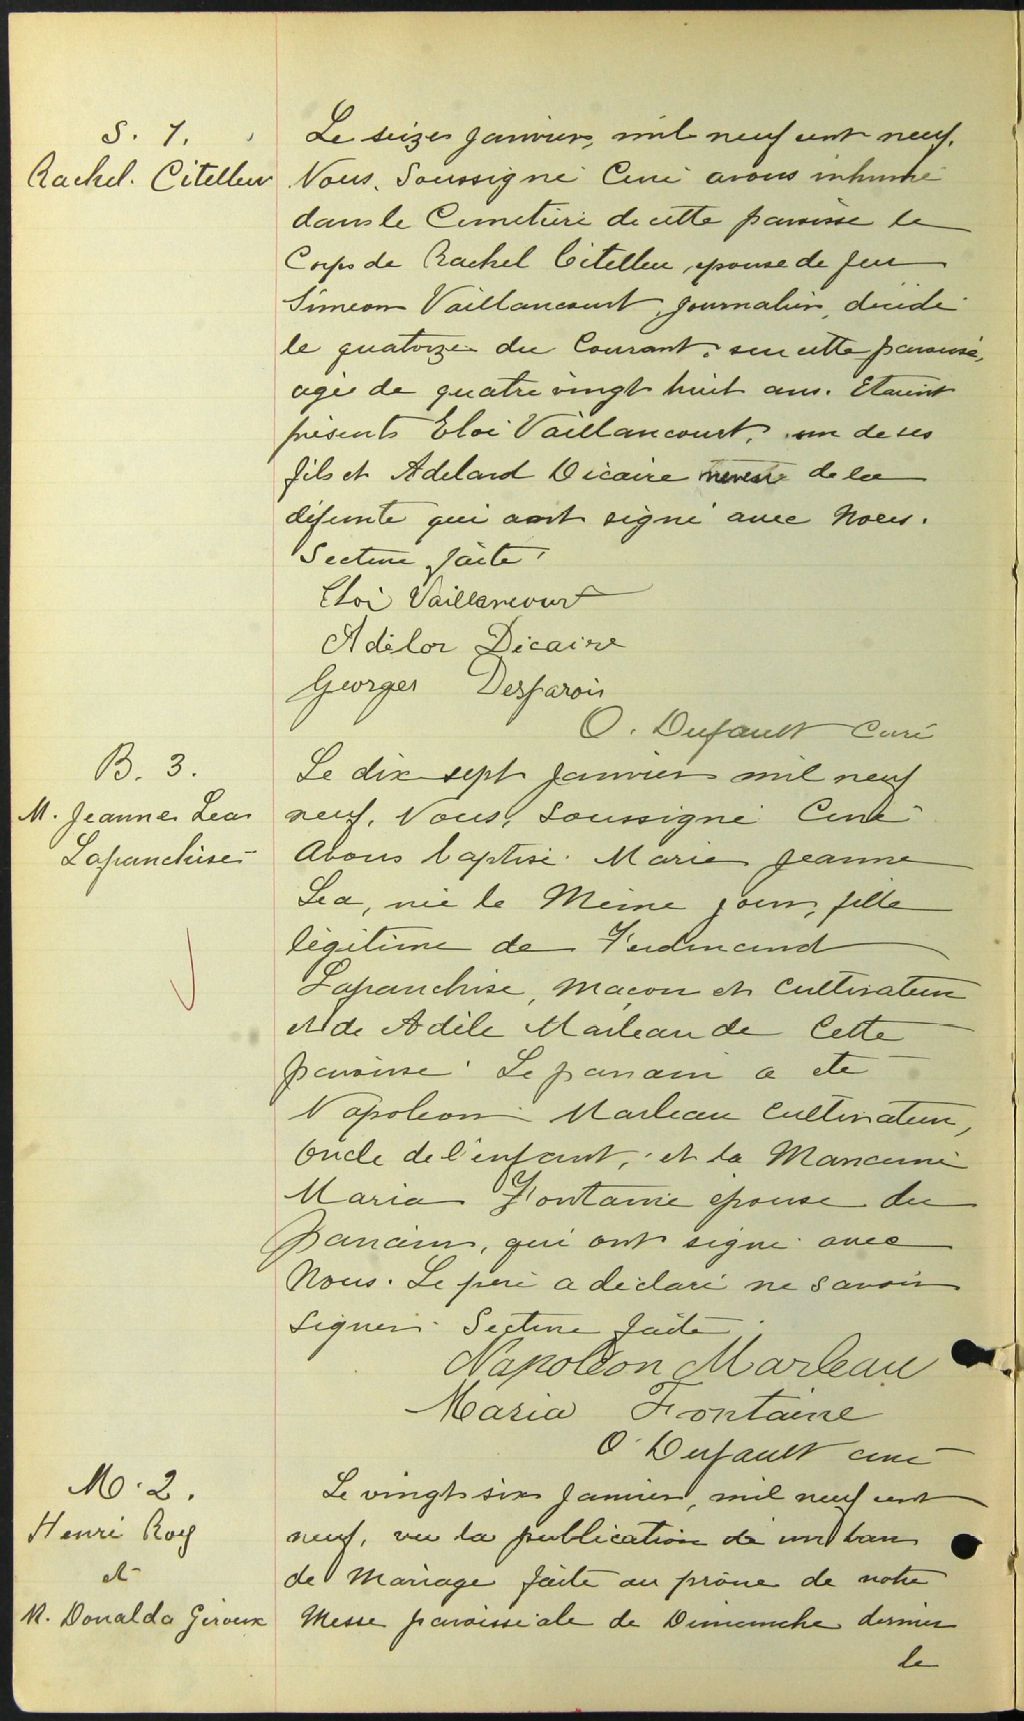 S. 1.
Rachel. Citelleu
Le seize janvier, mil neuf cent neuf.
Nous, Soussigné Curé avons inhumé
dans le Cimetière de cette paroisse le
Corps de Rachel Citelleu, épouse de feu
Siméon Vaillancourt, journalier, décédé
le quatorze du Courant, en cette paroisse,
agée de quatre vingt huit ans. Etaient
présents Eloi Vaillancourt, un de ses
fils et Adelard Dicaire neveu de la
défunte qui ont signé avec Nous.
Lecture faite.
Eloi Vaillancourt
Adélor Dicaire
Georges Desparois
O. Dufault Curé
B. 3.
M. Jeanne Lea
Lafranchise
Le dix-sept janvier mil neuf
neuf, Nous, Soussigné Curé
Avons baptisé Marie Jeanne
Lea, née le Même jour, fille
légitime de Ferdinand
Lafranchise, maçon et cultivateur
et de Adèle Marleau de Cette
paroisse. Le parrain a été
Napoléon Marleau cultivateur,
Oncle de l'enfant, et la Marraine
Maria Fontaine épouse du
parrain, qui ont signé avec
Nous. Le père a déclaré ne savoir
signer. Lecture faite.
Napoléon Marleau
Maria Fontaine
O. Dufault curé
M. 2.
Henri Roy
et
M. Donalda Giroux
Le vingt-six janvier, mil neuf cent
neuf, vu la publication de un ban
de Mariage faite au prône de notre
Messe paroissiale de Dimanche dernier
le